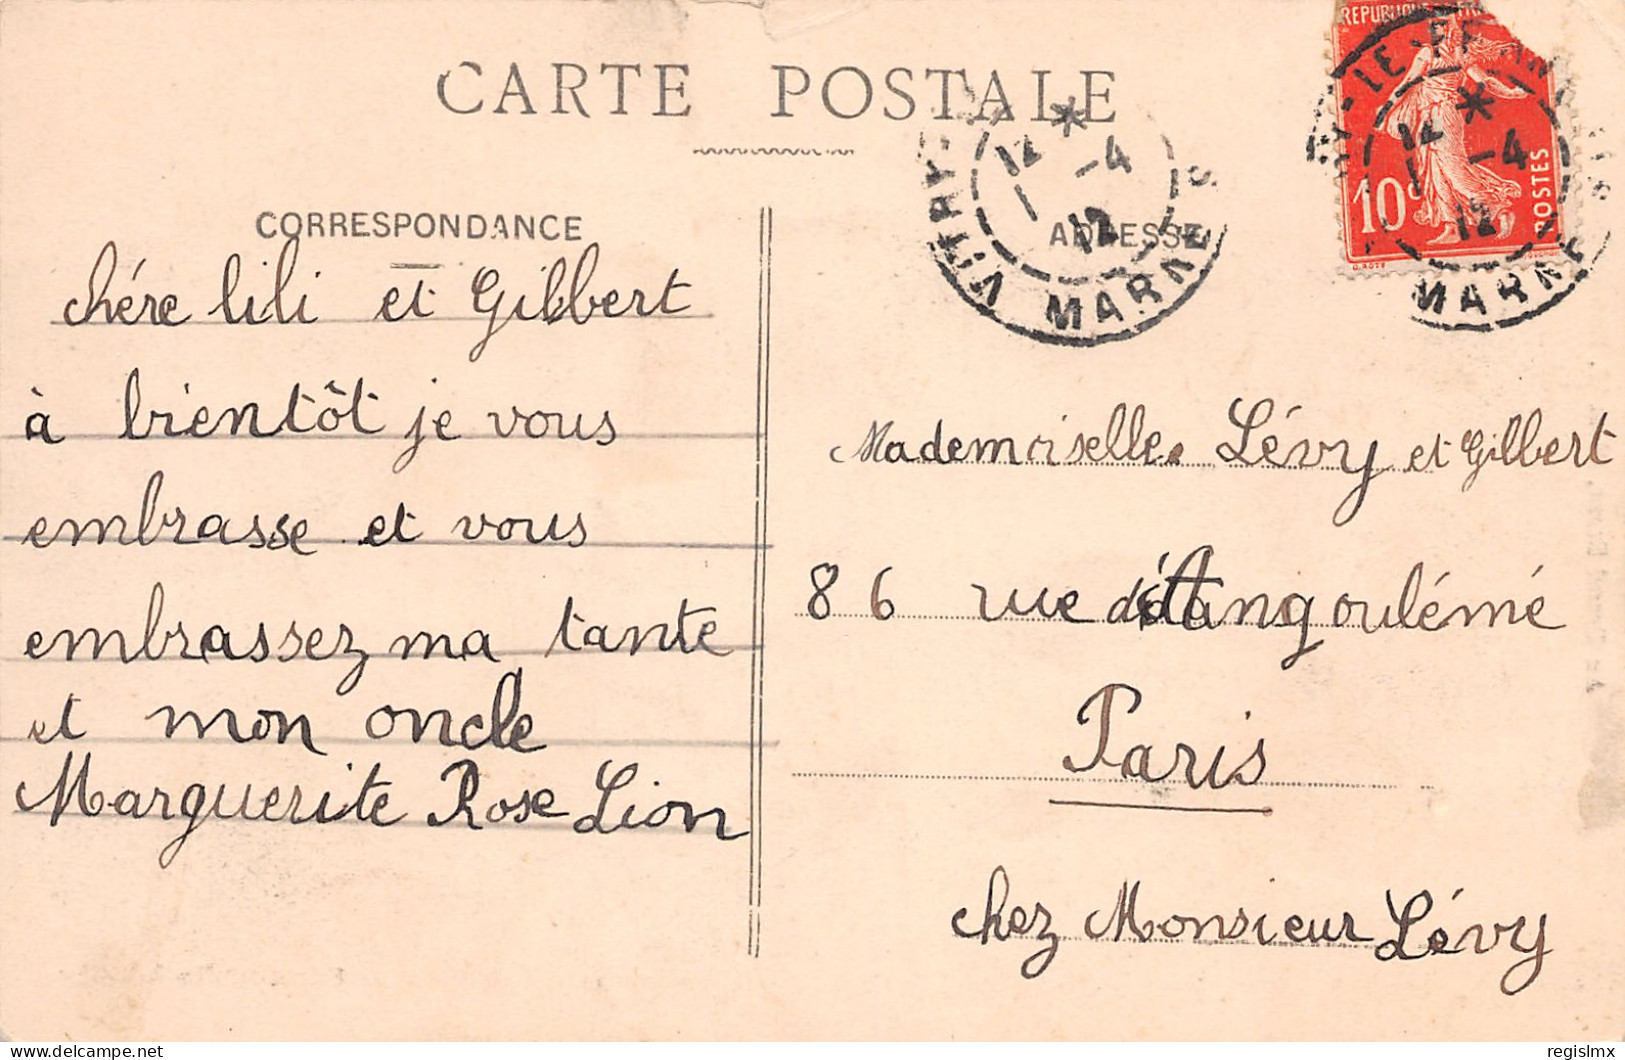 CARTE POSTALE
CORRESPONDANCE
chére lili et Gilbert
à bientôt je vous
embrasse et vous
embrassez ma tante
et mon oncle
Marguerite Rose Lion
ADRESSE
VITRY-
12 *
-4
12
MARNE
REPUBLIQUE FR
10c
POSTES
O. ROTY
RY-LE-FRAN
12 *
-4
12
MARNE
Mademoiselle Lévy et Gilbert
86 rue d'Angoulémé
Paris
chez Monsieur Lévy
delcampe.net
regislmx